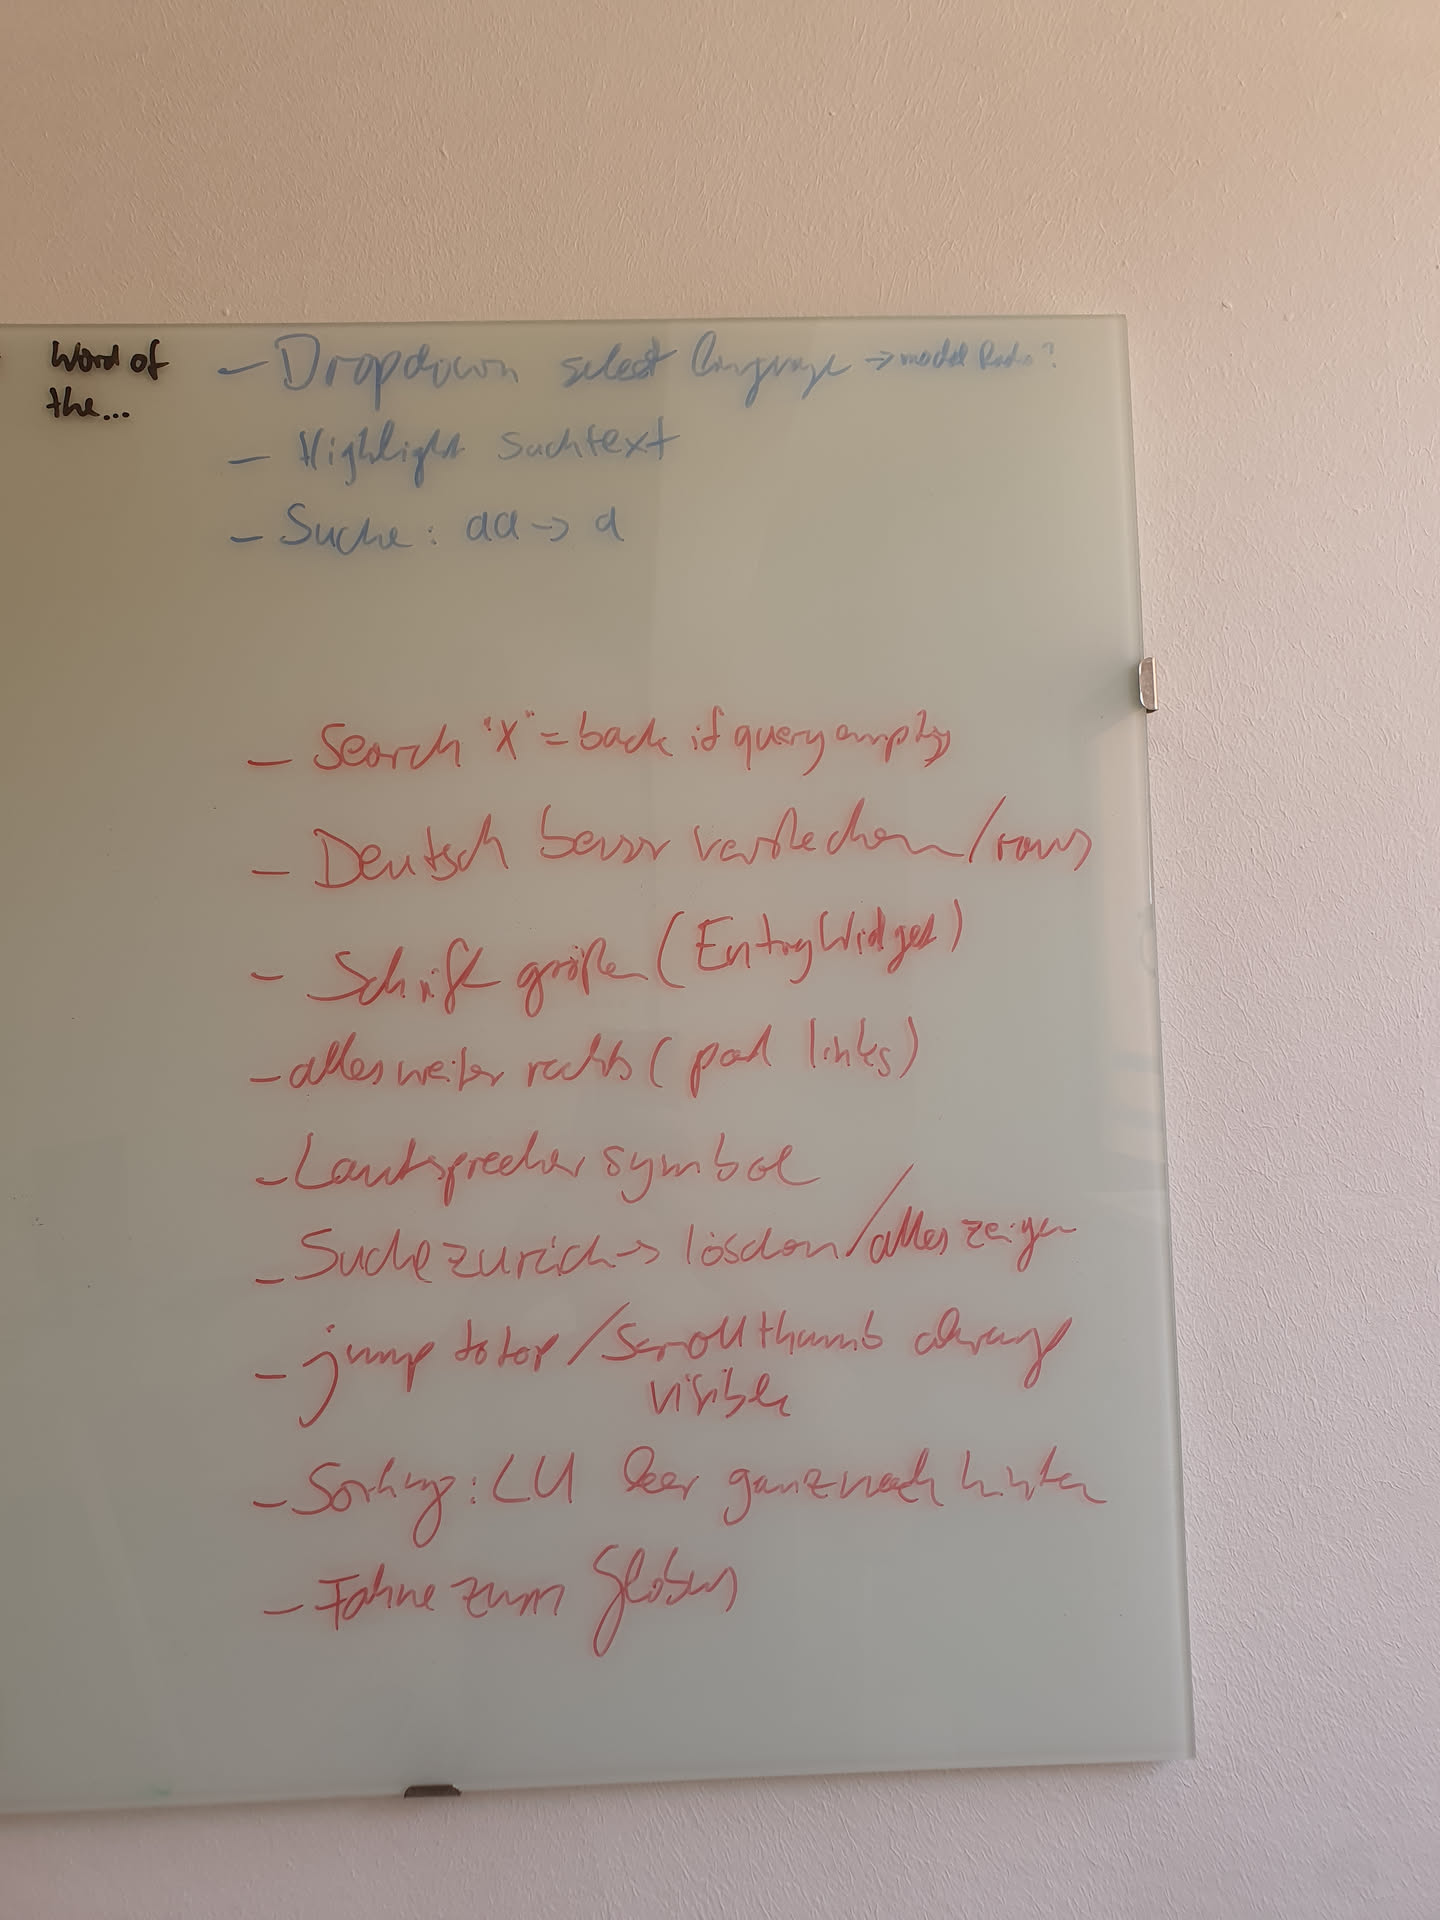 Word of
the...
- Dropdown select language → modal Radio?
- Highlight Suchtext
- Suche: aa → a
- Search "X" = back if query empty
- Deutsch besser verstecken/raus
- Schriftgrößen (EntryWidget)
- alles weiter rechts (pad links)
- Lautsprecher symbol
- Suche zurück → löschen/alles zeigen
- jump to top/Scrollthumb always
visible
- Sorting: LU leer ganz nach hinten
- Fahne zum Globus